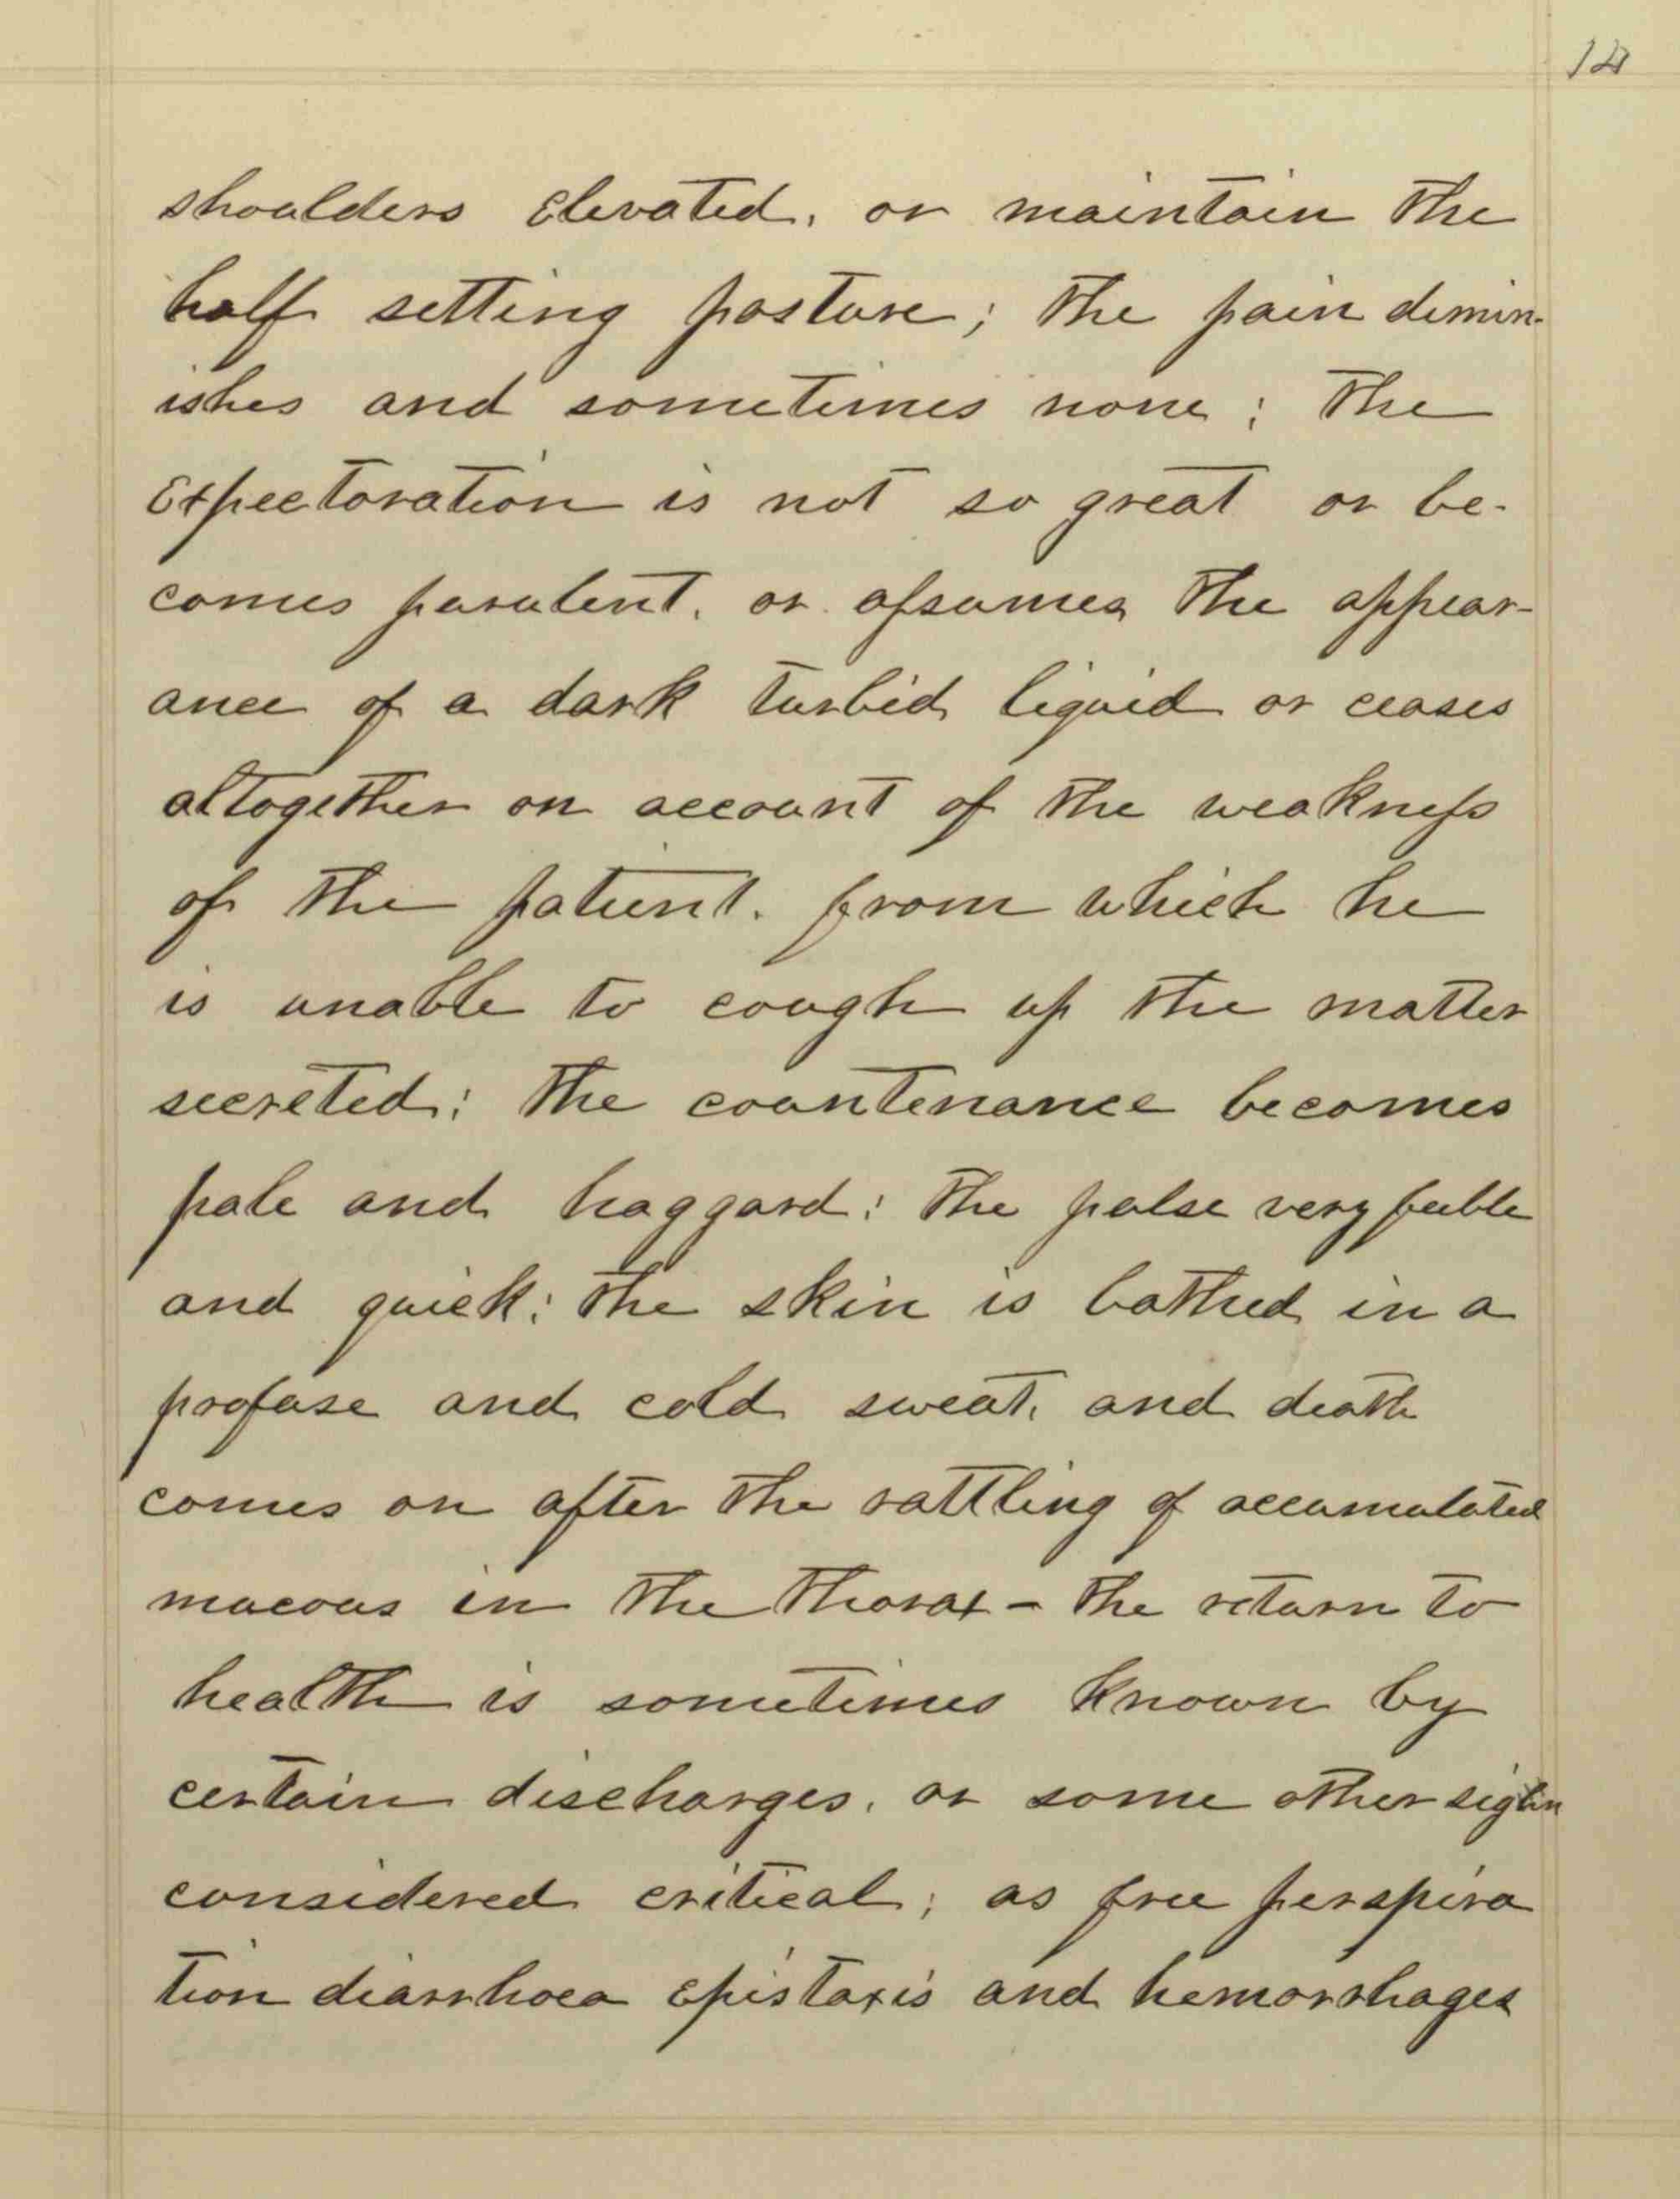 shoulders elevated, or maintain the
half setting posture; the pain dimin-
ishes and sometimes none; the
Expectoration is not so great or be-
comes purulent, or assumes the appear-
ance of a dark turbid liquid or ceases
altogether on account of the weakness
of the patient, from which he
is unable to cough up the matter
secreted; the countenance becomes
pale and haggard; the pulse very feeble
and quick; the skin is bathed in a
profuse and cold sweat, and death
comes on after the rattling of accumulated
mucous in the thorax - the return to
health is sometimes known by
certain discharges, or some other sign
considered critical; as free perspira
tion diarrhoea epistaxis and hemorrhages